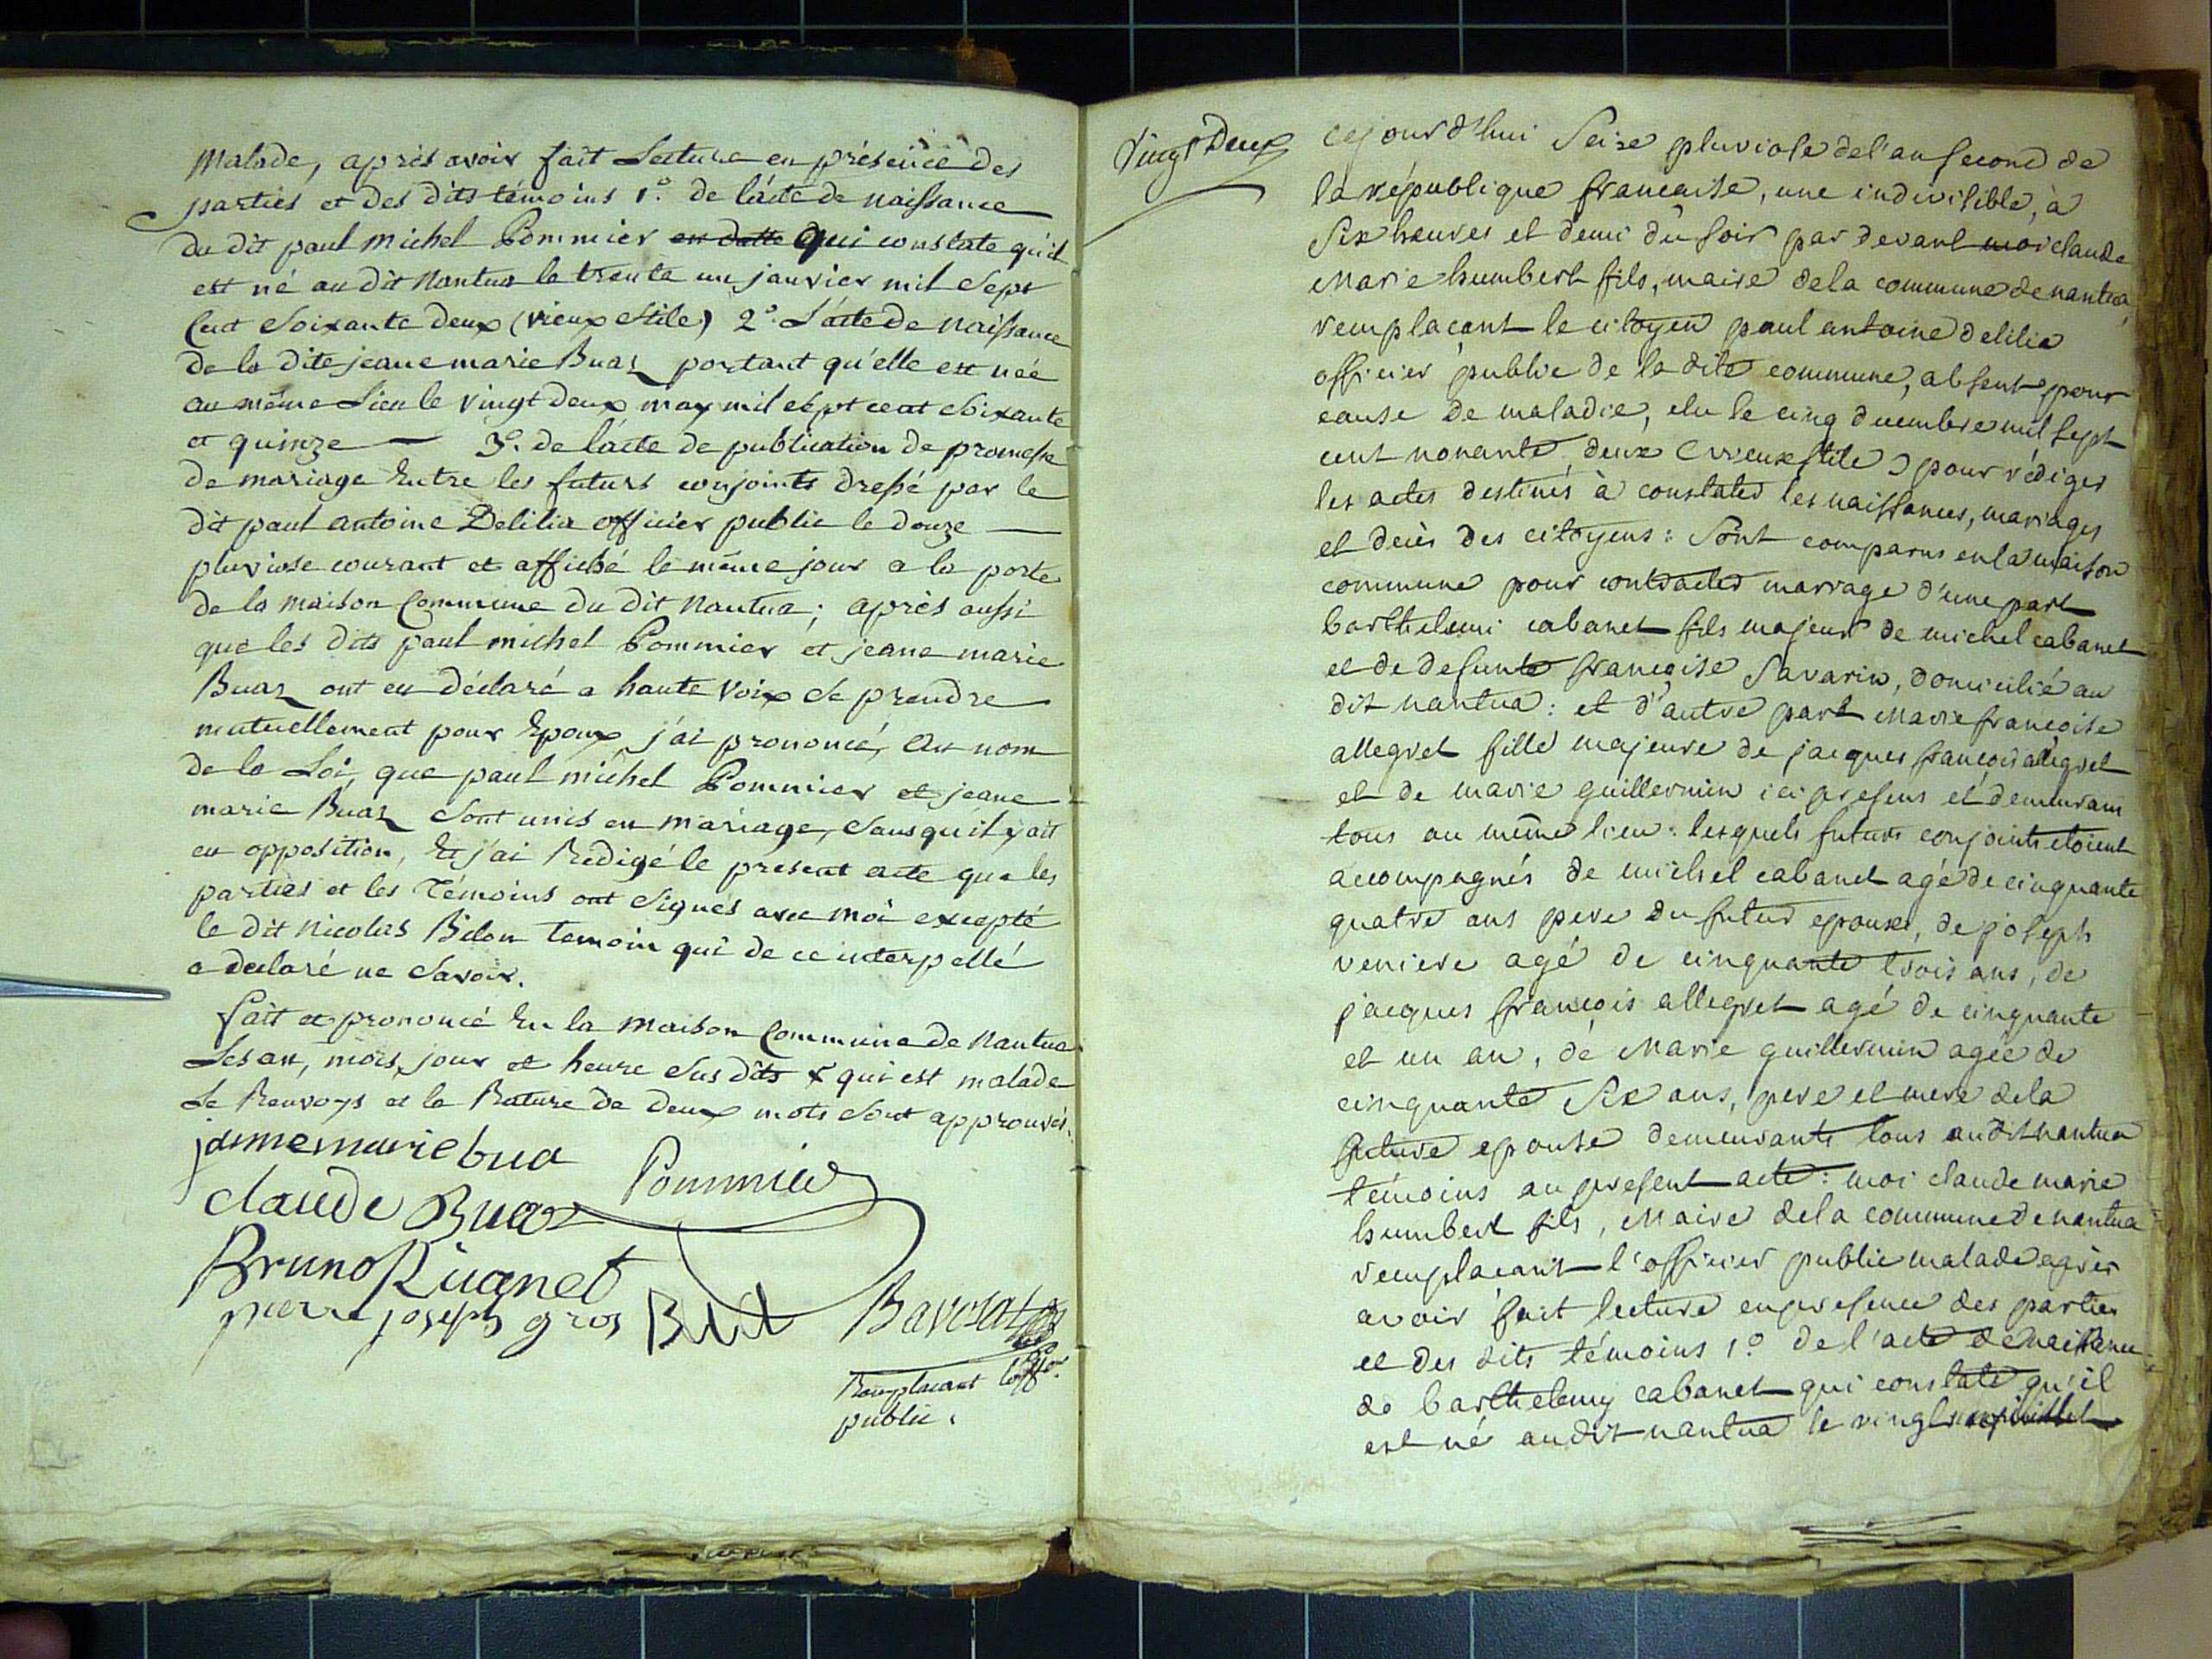 Malade, après avoir fait Lecture en présence des
parties et des dits témoins 1.° de l'acte de naissance
du dit paul michel Pommier en datte qui constate qu'il
est né au dit Nantua le trente un janvier mil Sept
Cent Soixante deux (vieux Stile) 2.° L'acte de Naissance
de la dite jeane marie Buaz portant qu'elle est née
au même Lieu le vingt deux may mil sept cent Soixante
et quinze — 3.° de l'acte de publication de promesse
de mariage Entre les futurs conjoints dressé par le
dit paul antoine Delilia officier public le douze —
pluviose courant et affiché le même jour a la porte
de la maison Commune du dit Nantua ; après aussi
que les dits paul michel Pommier et jeane marie
Buaz ont eu déclaré a haute voix Se prendre
mutuellement pour Epoux j'ai prononcé, Au nom
de la Loi, que paul michel Pommier et jeane
marie Buaz Sont unis en mariage, Sans qu'il y ait
eu opposition, Et j'ai Redigé le present acte que les
parties et les Témoins ont Signés avec moi excepté
le dit Nicolas Bilon temoin qui de ce interpellé
a declaré ne Savoir.
fait et prononcé En la maison Commune de Nantua
Les an, mois, jour et heure Sus dits x qui est malade
Le Renvoys et la Rature de deux mots Sont approuvés.
janne marie bua
Pommier
claude Buaz
Bruno Ruanet
pierre joseph gros
Remplacant l'off.er
public.
Vingt Deux
Cejourd'hui Seize pluviose de l'an second de
la république francaise, une indivisible, à
Six heures et demi du soir par devant moi claude
Marie humbert fils, maire dela commune de nantua,
remplacant le citoyen paul antoine delilia
officier public de la dite commune, absent pour
cause de maladie, elu le cinq decembre mil sept
cent nonante deux (vieux stile) pour rédiger
les actes destinés à constater les naissances, mariages
et decès des citoyens : Sont comparus en la maison
commune pour contracter marrage d'une part
barthelemi cabanet fils majeur de michel cabanet
et de defunte françoise Savarin, domicilié au
dit nantua : et d'autre part Marie françoise
allegret fille majeure de jacques francois allegret
et de marie guillermin ici presens et demeurant
tous au même lieu : lesquels futurs conjoints etoient
accompagnés de michel cabanet agé de cinquante
quatre ans pere du futur epoux, de joseph
veniere agé de cinquante trois ans, de
jacques françois allegret agé de cinquante
et un an, de Marie guillermin agée de
cinquante Six ans, pere et mere dela
future epouse demeurants tous au dit nantua
témoins au present acte : moi claude marie
humbert fils, Maire dela commune de nantua
remplacant l'officier public malade après
avoir fait lecture en presence des parties
et des dits témoins 1.° de l'acte de naissance
de barthelemy cabanet qui constate qu'il
est né au dit nantua le vingt